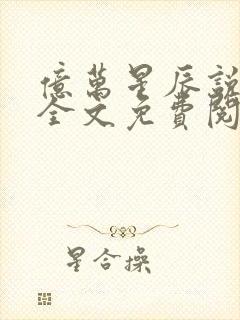 億萬星辰說
全文免費閱
星合操